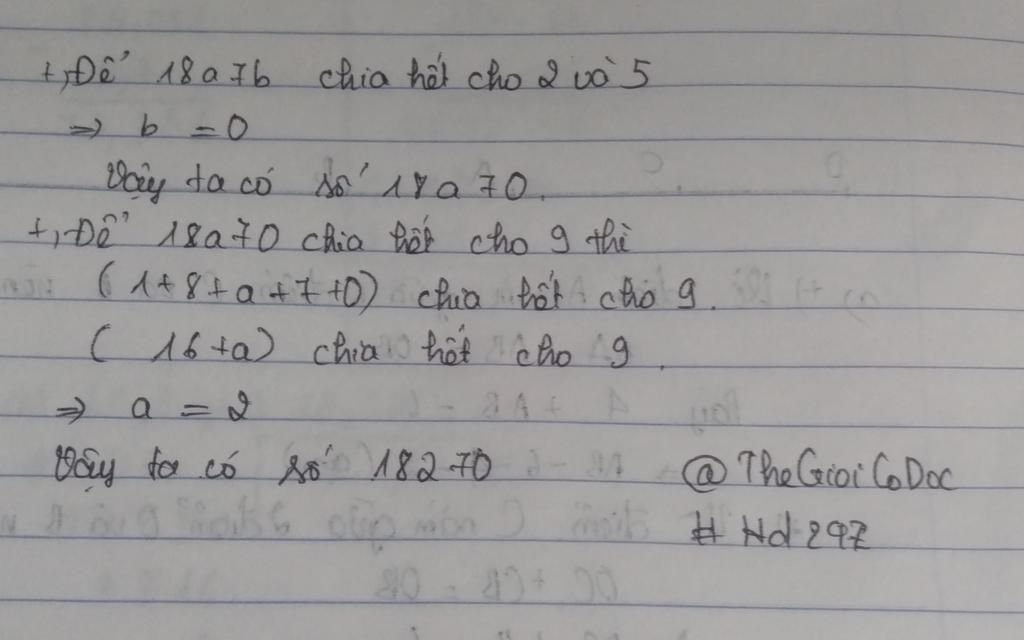 +, Để 18a7b chia hết cho 2 và 5
=> b = 0
Vậy ta có số 18a70.
+, Để 18a70 chia hết cho 9 thì
(1+8+a+7+0) chia hết cho 9.
(16+a) chia hết cho 9.
=> a = 2
Vậy ta có số 18270
@TheGioiCoDoc
# Hd297